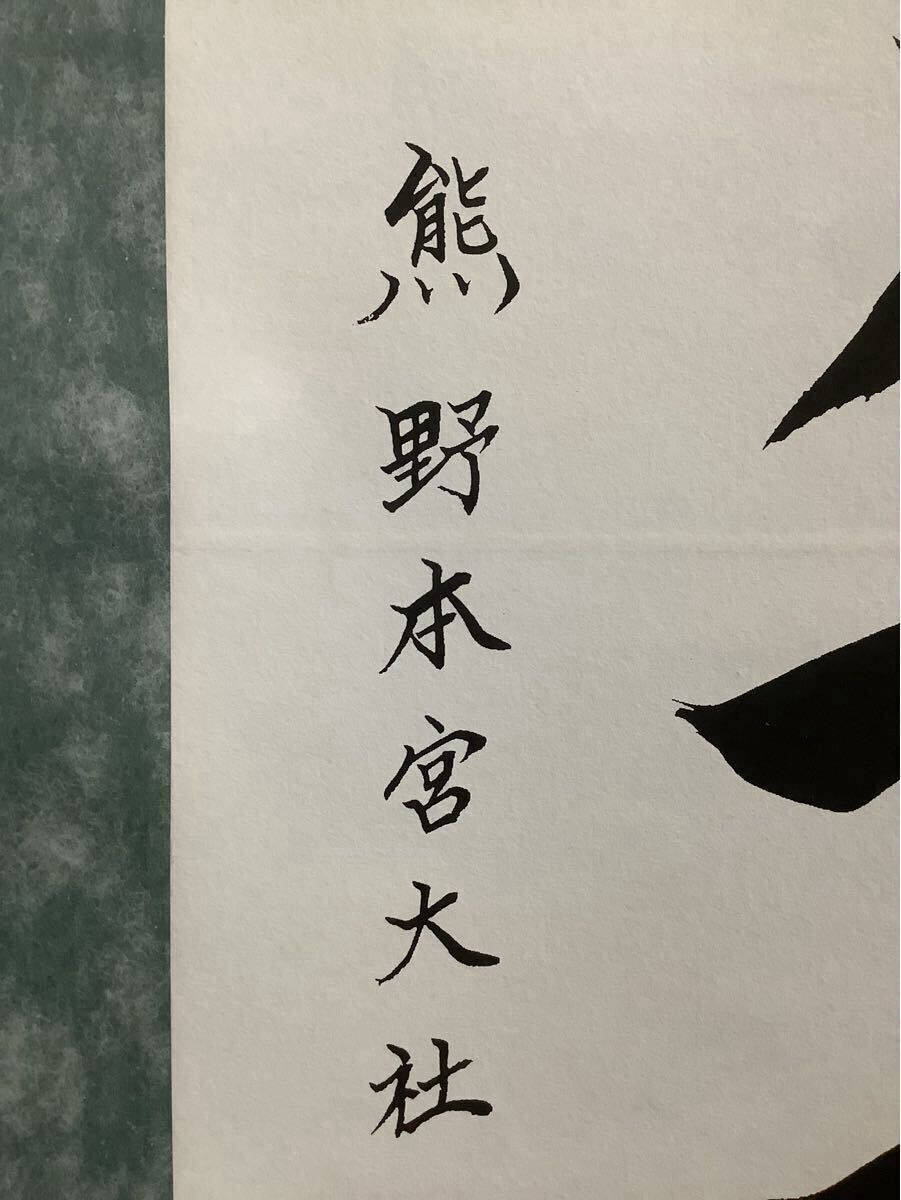 熊野本宮大社